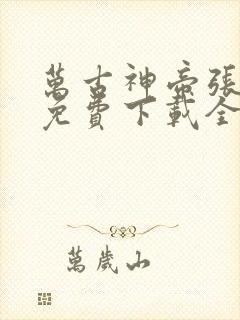 萬古神帝張
免費下載全
萬歲山